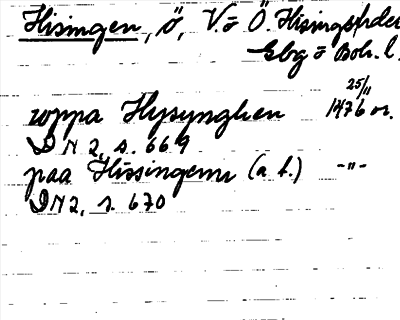 Hisingen, ö, V. o Ö. Hisings frder
Gbg o Boh. l.
uppa Hysynghen 25/11 1476 or.
DN 2, s. 669
paa Hissingenn (a. b.) -"-
DN 2, s. 670